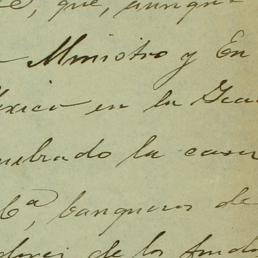 que, aunque
Ministro y En
éxico en la Gra
uebrado la casa
6ª, banqueros de
dores de los fondo